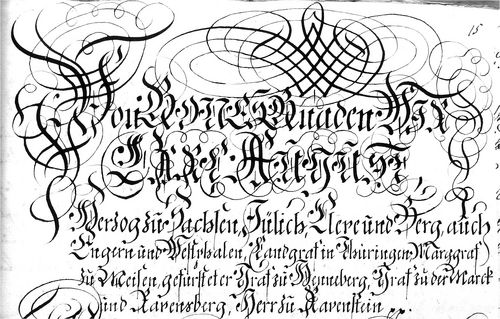 15
Von GOTTES Gnaden WIR
CARL AUGUST,
Herzog zu Sachsen, Jülich, Cleve und Berg, auch
Engern und Westphalen, Landgraf in Thüringen, Marggraf
zu Meisen, gefürsteter Graf zu Henneberg, Graf zu der Marck
und Ravensberg, Herr zu Ravenstein